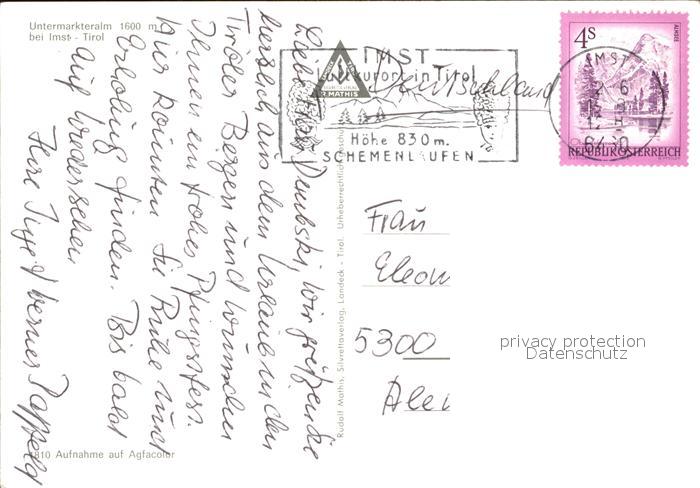 Untermarkteralm 1600 m
bei Imst - Tirol
Liebe Frau Dembski, wir grüßen Sie
herzlich aus dem Urlaub in den
Tiroler Bergen und wünschen
Ihnen ein frohes Pfingstfest.
Hier könnten Sie Ruhe und
Erholung finden. Bis bald
auf Wiedersehen
Ihre Inge & Werner
4810 Aufnahme auf Agfacolor
Rudolf Mathis, Silvrettaverlag, Landeck - Tirol. Urheberrechtlich
MATHIS
IMST
Luftkurort in Tirol
Höhe 830 m.
SCHEMENLAUFEN
Deutschland
4S
ALMSEE
REPUBLIK ÖSTERREICH
IMST
6
12
Frau
5300
privacy protection
Datenschutz